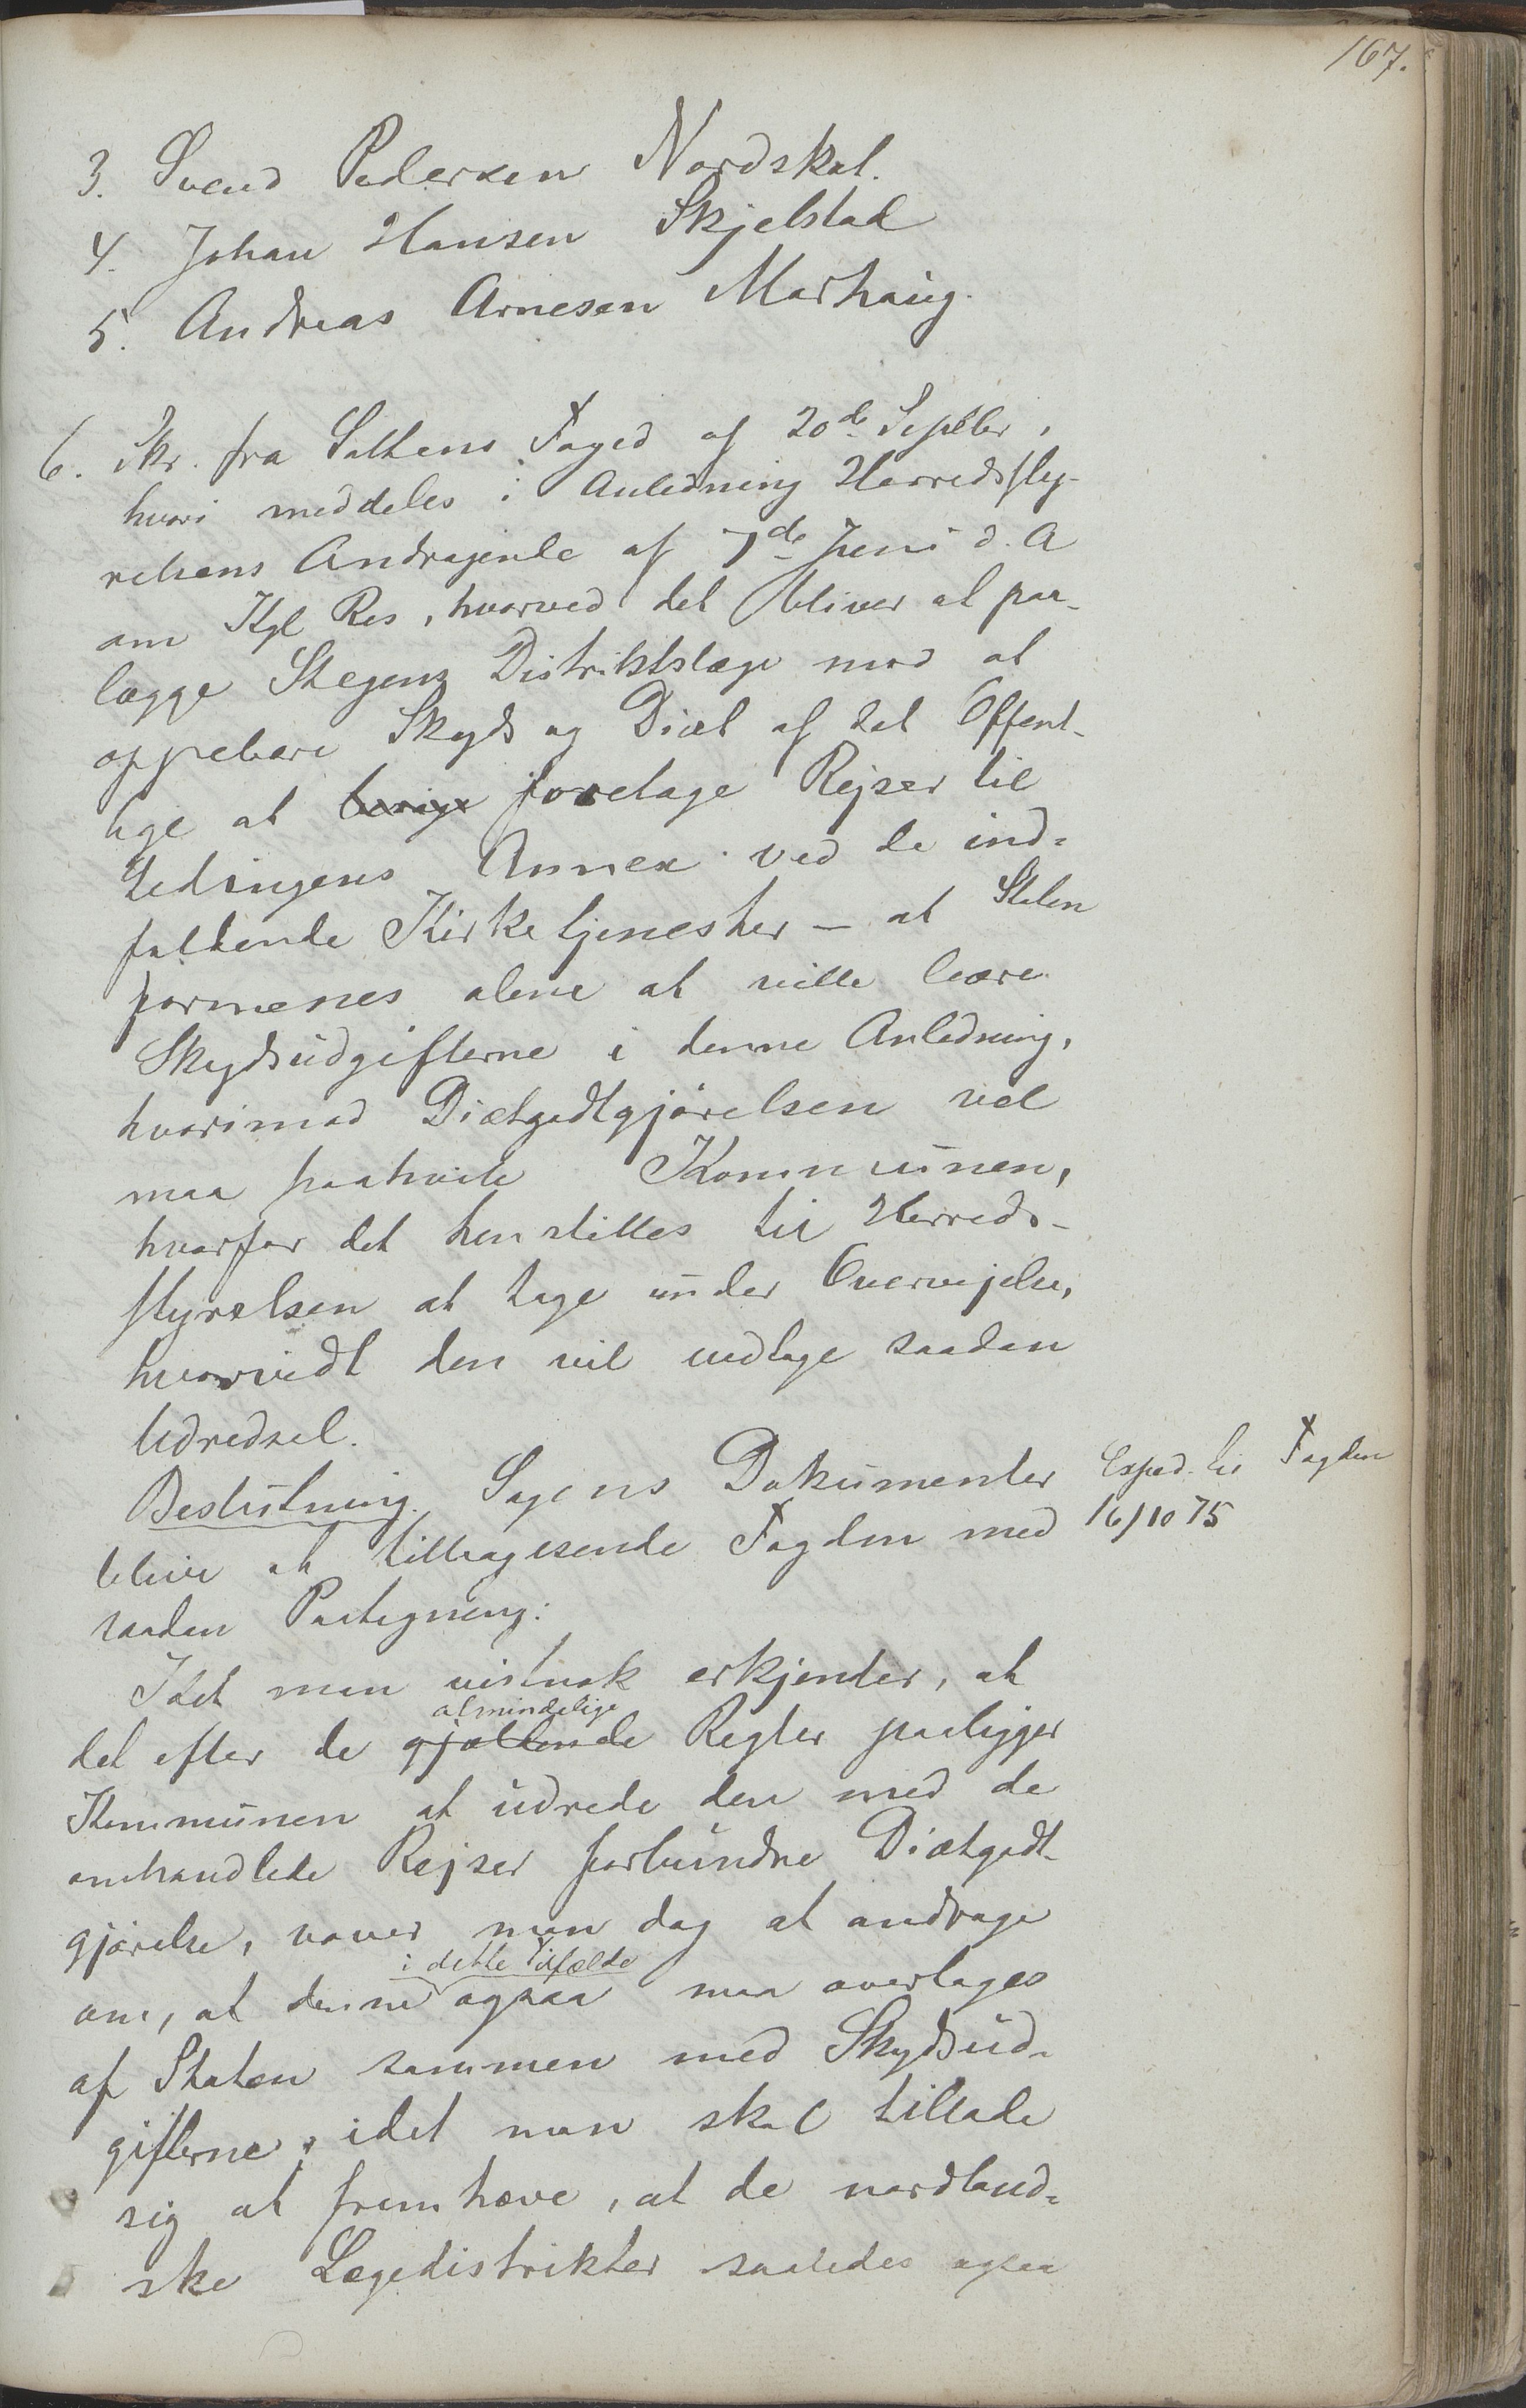 167.
3. Svend Pedersen Nordskot.
4. Johan Hansen Skjelstad
5. Andreas Arnesen Marhaug.
6. Skr. fra Saltens Foged af 20de Septbr,
hvori meddeles i Anledning Herredssty-
relsens Andragende af 7de Juni d. A
om Kgl Res, hvorved det bliver at paa-
lægge Stegens Distriktslæge mod at
oppebære Skyds og Diæt af det Offent-
lige at besøge foretage Rejser til
Ledingens Annex ved de ind-
faldende Kirketjenester - at Staten
formenes alene at ville bære
Skydsudgifterne i denne Anledning,
hvorimod Diætgodtgjørelsen vel
maa paahvile Kommunen,
hvorfor det henstilles til Herreds-
styrelsen at tage under Overvejelse,
hvorvidt den vil vedtage saadan
Udredsel.
Beslutning. Sagens Dokumenter
Exped. til Fogden
16/10 75
bliver at tilbagesende Fogden med
saadan Paategning:
Idet man vistnok erkjender, at
almindelige
det efter de gjældende Regler paaligger
Kommunen at udrede den med de
omhandlede Rejser forbundne Diætgodt-
gjørelse, vover man dog at andrage
i dette Tilfælde
om, at denne ogsaa maa overtages
af Staten sammen med Skydsud-
gifterne, idet man skal tillade
sig at fremhæve, at de nordland-
ske Lægedistrikter saaledes ogsaa